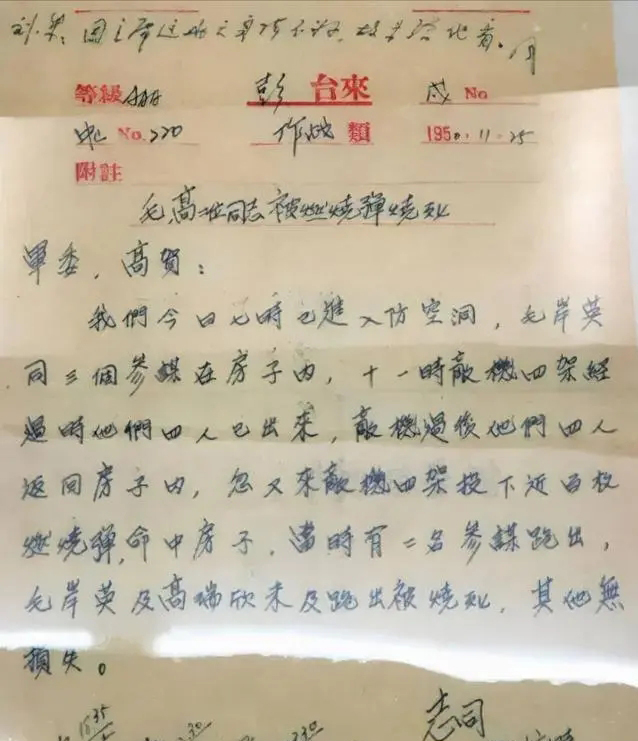 等級 AAAA 彭 台來 戌 No
No. 220 作战 類 1950.11.25
附註
毛高二位同志被燃燒彈燒死
軍委，高賀：
我們今日七時已進入防空洞，毛岸英
同三個參謀在房子内，十一時敵機四架經
過時他們四人已出來，敵機過後他們四人
返回房子内，忽又來敵機四架投下近百枚
燃燒彈，命中房子，當時有二名參謀跑出，
毛岸英及高瑞欣未及跑出被燒死，其他無
損失。
志司